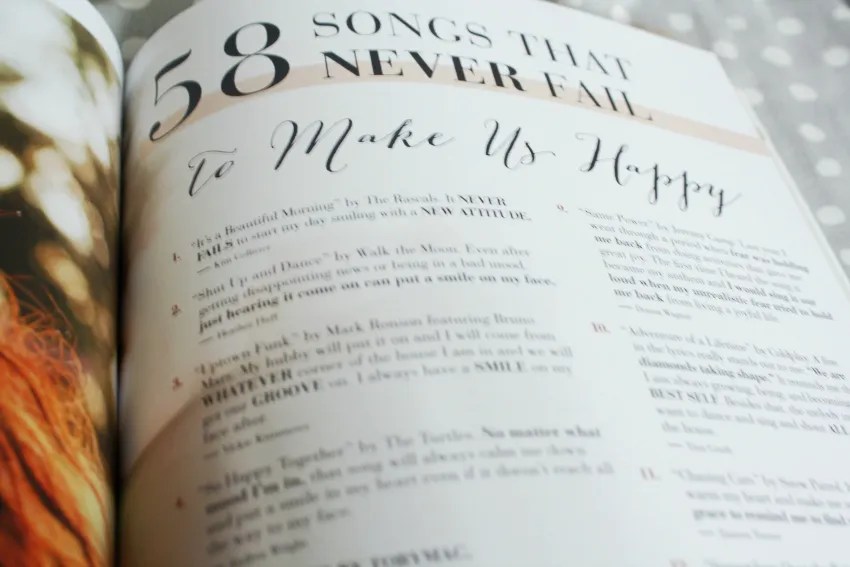 58 SONGS THAT
NEVER FAIL
To Make Us Happy
1. "It's a Beautiful Morning" by The Rascals. It NEVER
FAILS to start my day smiling with a NEW ATTITUDE.
2. "Shut Up and Dance" by Walk the Moon. Even after
getting disappointing news or being in a bad mood,
just hearing it come on can put a smile on my face.
— Heather Huff
3. "Uptown Funk" by Mark Ronson featuring Bruno
Mars. My hubby will put it on and I will come from
WHATEVER corner of the house I am in and we will
get our GROOVE on. I always have a SMILE on my
face after.
4. "So Happy Together" by The Turtles. No matter what
mood I'm in, that song will always calm me down
and put a smile in my heart even if it doesn't reach all
the way to my face.
9. "Same Power" by Jeremy Camp. Last year I
went through a period where fear was holding
me back from doing activities that gave me
great joy. The first time I heard this song it
became my anthem and I would sing it out
loud when my unrealistic fear tried to hold
me back from living a joyful life.
10. "Adventure of a Lifetime" by Coldplay. A line
in the lyrics really stands out to me: "We are
diamonds taking shape."
I am always growing, being, and becoming
BEST SELF. Besides that, the
want to dance and sing and shout ALL
the house.
11. "Chasing Cars" by Snow Patrol.
warms my heart and
grace to remind me to find